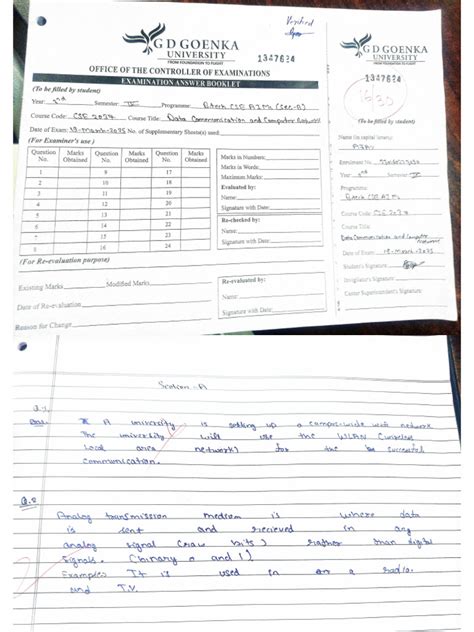 Verified
G D GOENKA
UNIVERSITY
FROM FOUNDATION TO FLIGHT
1347624
OFFICE OF THE CONTROLLER OF EXAMINATIONS
EXAMINATION ANSWER BOOKLET
(To be filled by student)
Year: 2nd Semester: Programme: Btech CSE AIML (Sec-A)
Course Code: CSE 2034 Course Title: Data Communication and Computer Networks
Date of Exam: 18-March-2025 No. of Supplementary Sheets(s) used:
(For Examiner's use )
Question No. Marks Obtained Question No. Marks Obtained
1 9 17
2 10 18
3 11 19
4 12 20
5 13 21
6 14 22
7 15 23
8 16 24
Marks in Number:
Marks in Words:
Maximum Marks:
Evaluated by:
Name:
Signature with Date:
Re-checked by:
Name:
Signature with Date:
(For Re-evaluation purpose)
Existing Marks Modified Marks
Date of Re-evaluation
Reason for Change
Re-evaluated by:
Name:
Signature with Date:
G D GOENKA
UNIVERSITY
FROM FOUNDATION TO FLIGHT
1347624
(To be filled by student)
Name (in capital letters):
Enrolment No.
Year: 2nd Semester:
Programme:
Btech CSE AIML
Course Code: CSE 2034
Course Title:
Data Communication and Computer
Networks
Date of Exam: 18-March-2025
Student's Signature:
Invigilator's Signature:
Center Superintendent's Signature:
Section - A
Q.1.
Ans. A university is setting up a campus-wide wifi network
The university will use the WLAN (wireless
local area network) for the successful
communication.
Q.2
Analog transmission medium is where data
is sent and recieved in any
analog signal (raw bits) rather than digital
signals. (binary 0 and 1)
Examples It is used in a radio.
and T.V.